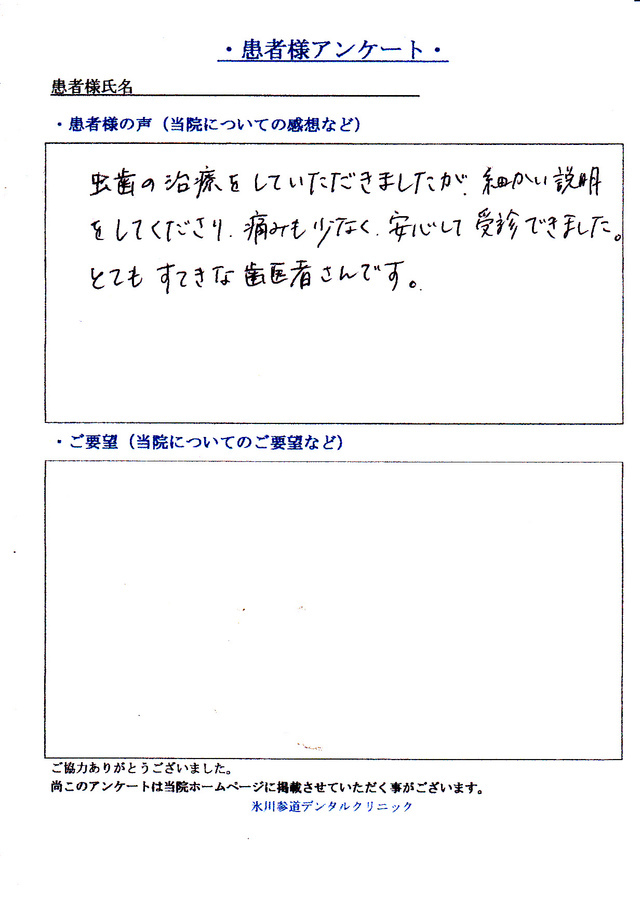 ・患者様アンケート・
患者様氏名
・患者様の声（当院についての感想など）
虫歯の治療をしていただきましたが、細かい説明
をしてくださり、痛みも少なく、安心して受診できました。
とてもすてきな歯医者さんです。
・ご要望（当院についてのご要望など）
ご協力ありがとうございました。
尚このアンケートは当院ホームページに掲載させていただく事がございます。
氷川参道デンタルクリニック